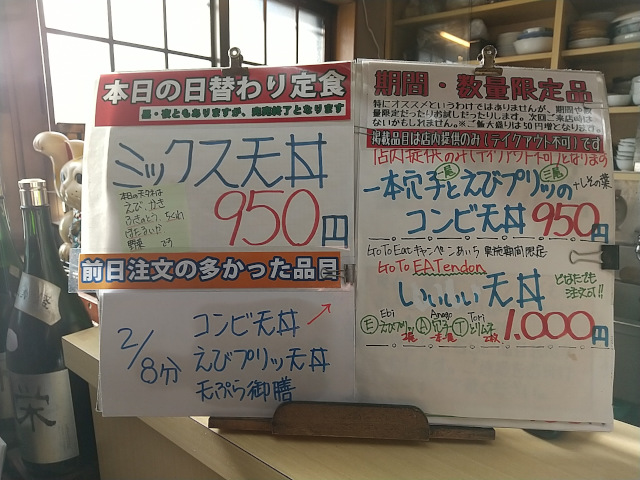 本日の日替わり定食
昼・夜ともありますが、完売終了となります
ミックス天丼
本日の天タネは
えび かき
ふきのとう
ほたるいか
野菜 です
950円
前日注文の多かった品目
2/8分
コンビ天丼
えびプリッ天丼
天ぷら御膳
期間・数量限定品
特にオススメというわけではありませんが、期間や数
量限定だったりお試しだったりします。次回ご来店時は
ないかもしれません。※ご飯大盛りは50円増となります。
掲載品目は店内提供のみ(テイクアウト不可)です
店内提供のみ(テイクアウト不可)となります
一本穴子とえびプリッの
一尾
二尾
+しその葉
コンビ天丼 950円
Go To Eat キャンペーンあいち 実施期間限定
Go To EATendon
いいいい天丼
とはたでも
注文可!!
Ebi Anago Tori
Ⓔえびプリッ Ⓐ穴子 Ⓣとりムネ
2尾 一本 2枚
1,000円
栄